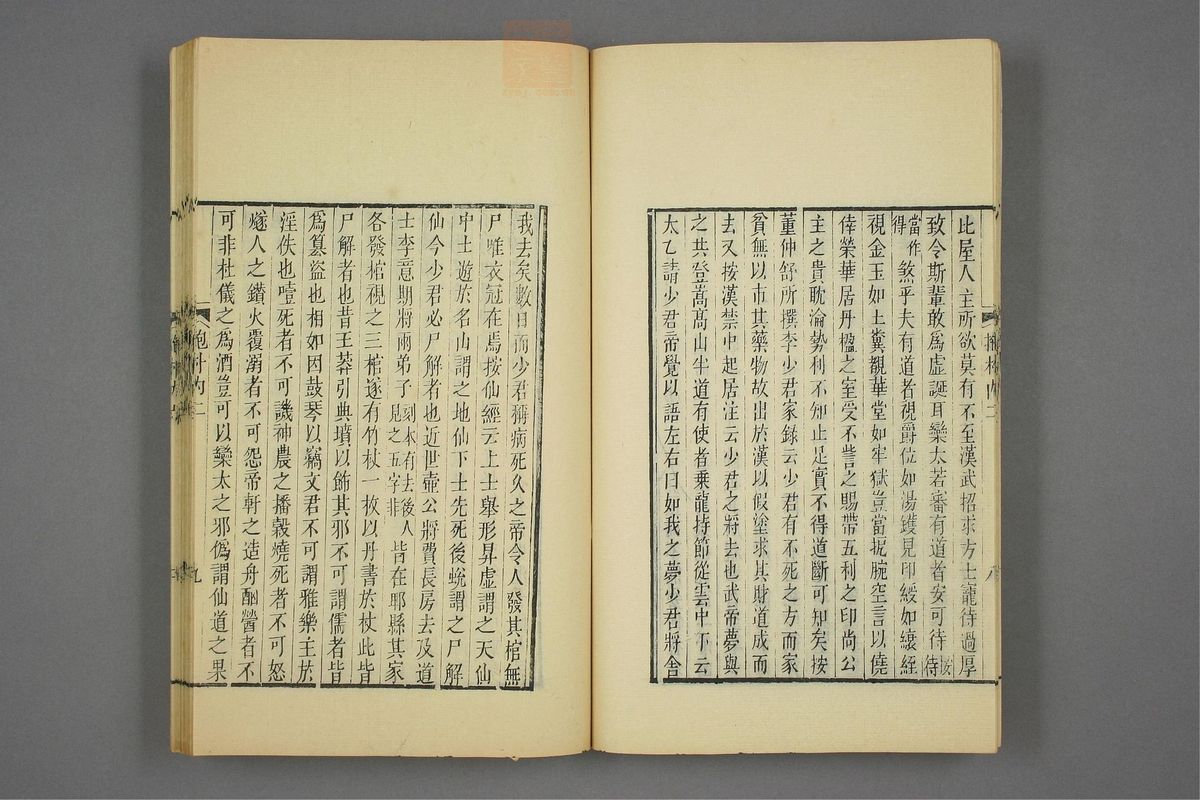 比屋人主所欲莫有不至漢武招求方士寵待過厚
致令斯輩敢爲虛誕耳欒太若審有道者安可待按侍
當作得煞乎夫有道者視爵位如湯鑊見印綬如縗絰
視金玉如土糞覩華堂如牢獄豈當扼腕空言以僥
倖榮華居丹楹之室受不訾之賜帶五利之印尚公
主之貴耽淪勢利不知止足實不得道斷可知矣按
董仲舒所撰李少君家錄云少君有不死之方而家
貧無以市其藥物故出於漢以假塗求其財道成而
去又按漢禁中起居注云少君之將去也武帝夢與
之共登嵩高山半道有使者乘龍持節從雲中下云
太乙請少君帝覺以語左右曰如我之夢少君將舍
我去矣數日而少君稱病死久之帝令人發其棺無
尸唯衣冠在焉按仙經云上士舉形昇虛謂之天仙
中士遊於名山謂之地仙下士先死後蛻謂之尸解
仙今少君必尸解者也近世壺公將費長房去及道
士李意期將兩弟子刻本有去後人見之五字非皆在郫縣其家
各發棺視之三棺遂有竹杖一枚以丹書於杖此皆
尸解者也昔王莽引典墳以飾其邪不可謂儒者皆
爲篡盜也相如因鼓琴以竊文君不可謂雅樂主於
淫佚也噎死者不可譏神農之播穀燒死者不可怒
燧人之鑽火覆溺者不可怨帝軒之造舟酗醟者不
可非杜儀之爲酒豈可以欒太之邪僞謂仙道之果
抱朴內二
九
八